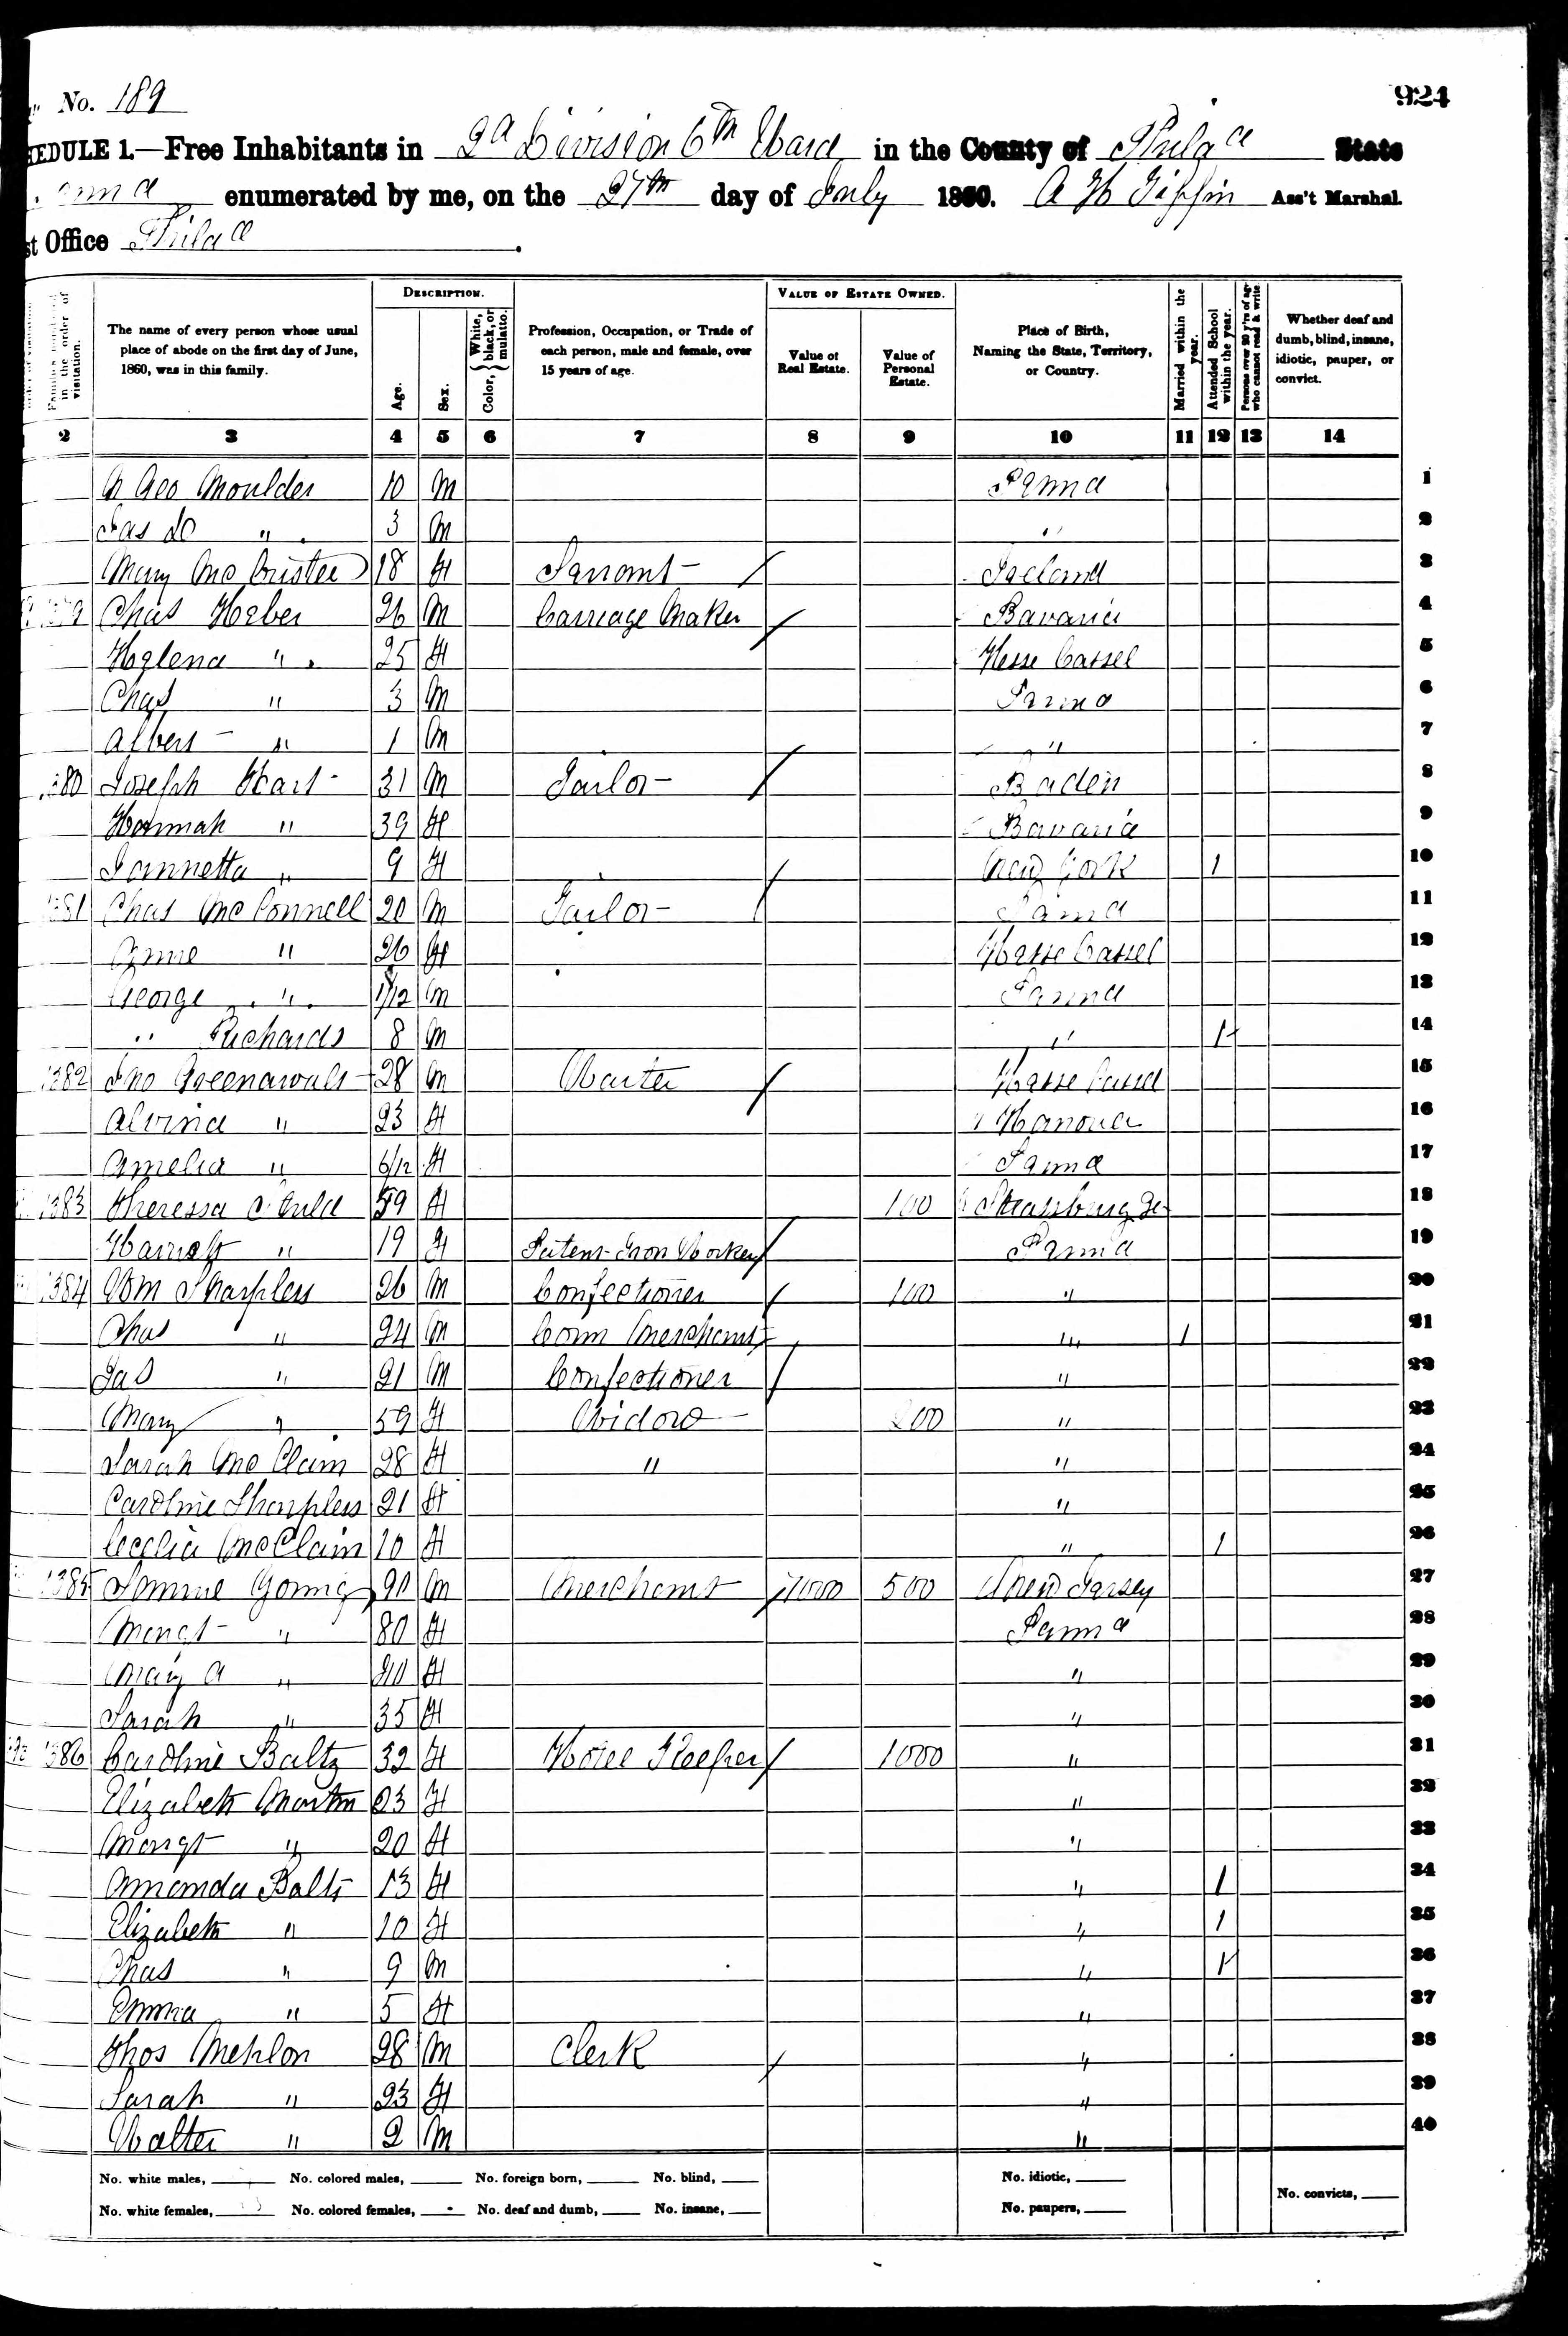 No. 189
924
EDULE 1.—Free Inhabitants in 2d Division 6th Ward in the County of Philada State
enna enumerated by me, on the 27th day of July 1860. A H Tippin Ass't Marshal.
st Office Philada.
Families in the order of visitation.
The name of every person whose usual place of abode on the first day of June, 1860, was in this family.
DESCRIPTION.
Age.
Sex.
Color, White, black, or mulatto.
Profession, Occupation, or Trade of each person, male and female, over 15 years of age.
VALUE OF ESTATE OWNED.
Value of Real Estate.
Value of Personal Estate.
Place of Birth, Naming the State, Territory, or Country.
Married within the year.
Attended School within the year.
Persons over 20 y'rs of age who cannot read & write.
Whether deaf and dumb, blind, insane, idiotic, pauper, or convict.
2 3 4 5 6 7 8 9 10 11 12 13 14
Geo Moulder 10 M Penna 1
Jas do " 3 M " 2
Mary Mc 18 F Servant Ireland 3
Chas Heber 26 M Carriage Maker Bavaria 4
Helena " 25 F Hesse Cassel 5
Chas " 3 M Penna 6
Albert " 1 M " 7
380 Joseph Hart 31 M Tailor Baden 8
Hannah " 39 F Bavaria 9
Jannetta " 9 F New York 1 10
1381 Chas McConnell 20 M Tailor Penna 11
Anne " 26 F Hesse Cassel 12
George " /12 M Penna 13
" Richards 8 M " 1 14
1382 Jno Greenawalt 28 M Waiter Hesse Cassel 15
Alvina " 23 F Hanover 16
Amelia " 6/12 F Penna 17
1383 Theressa 59 F 100 Strassburg 18
Harriet " 19 F Patent Iron Worker Penna 19
1384 Wm Sharpless 26 M Confectioner 100 " 20
Chas " 24 M Comm Merchant " 1 21
Jas " 21 M Confectioner " 22
Mary " 59 F Widow 200 " 23
Sarah McClain 28 F " " 24
Caroline Sharpless 21 F " 25
Cecelia McClain 10 F " 1 26
1385 90 M Merchant 7000 500 New Jersey 27
Margt " 80 F Penna 28
Mary A " 40 F " 29
Sarah " 35 F " 30
1386 Caroline Baltz 32 F Hotel Keeper 1000 " 31
Elizabeth Martin 23 F " 32
Margt " 20 F " 33
Amanda Baltz 13 F " 1 34
Elizabeth " 10 F " 1 35
Chas " 9 M " 1 36
Emma " 5 F " 37
Thos Mehlon 28 M Clerk " 38
Sarah " 23 F " 39
Walter " 2 M " 40
No. white males, No. colored males, No. foreign born, No. blind, No. idiotic,
No. white females, No. colored females, No. deaf and dumb, No. insane, No. paupers, No. convicts,